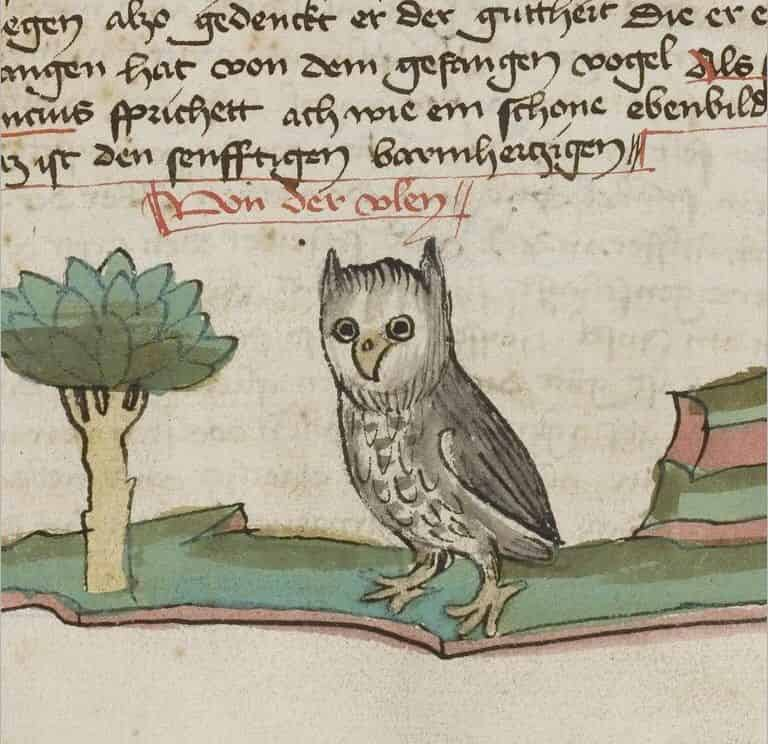 egen also gedenckt er der guttheit Die er e
angen hat von dem gefangen vogel Als
ncius sprichett ach wie ein schone ebenbild
tz ist den senfftigen barmhertzigen
Von der vlen